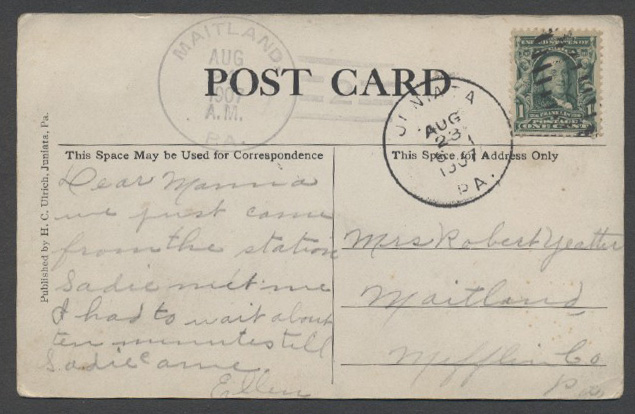 MAITLAND,
AUG
1907
A.M.
PA.
POST CARD
JUNIATA
AUG
23
1907
PA.
1
POSTAGE
1
ONE CENT
Published by H. C. Ulrich, Juniata, Pa.
This Space May be Used for Correspondence
This Space for Address Only
Dear Mamma
we just came
from the station
Sadie met me
I had to wait about
ten minutes till
Sadie came
Ellen
Mrs Robert Yeatter
Maitland
Mifflin Co
Pa